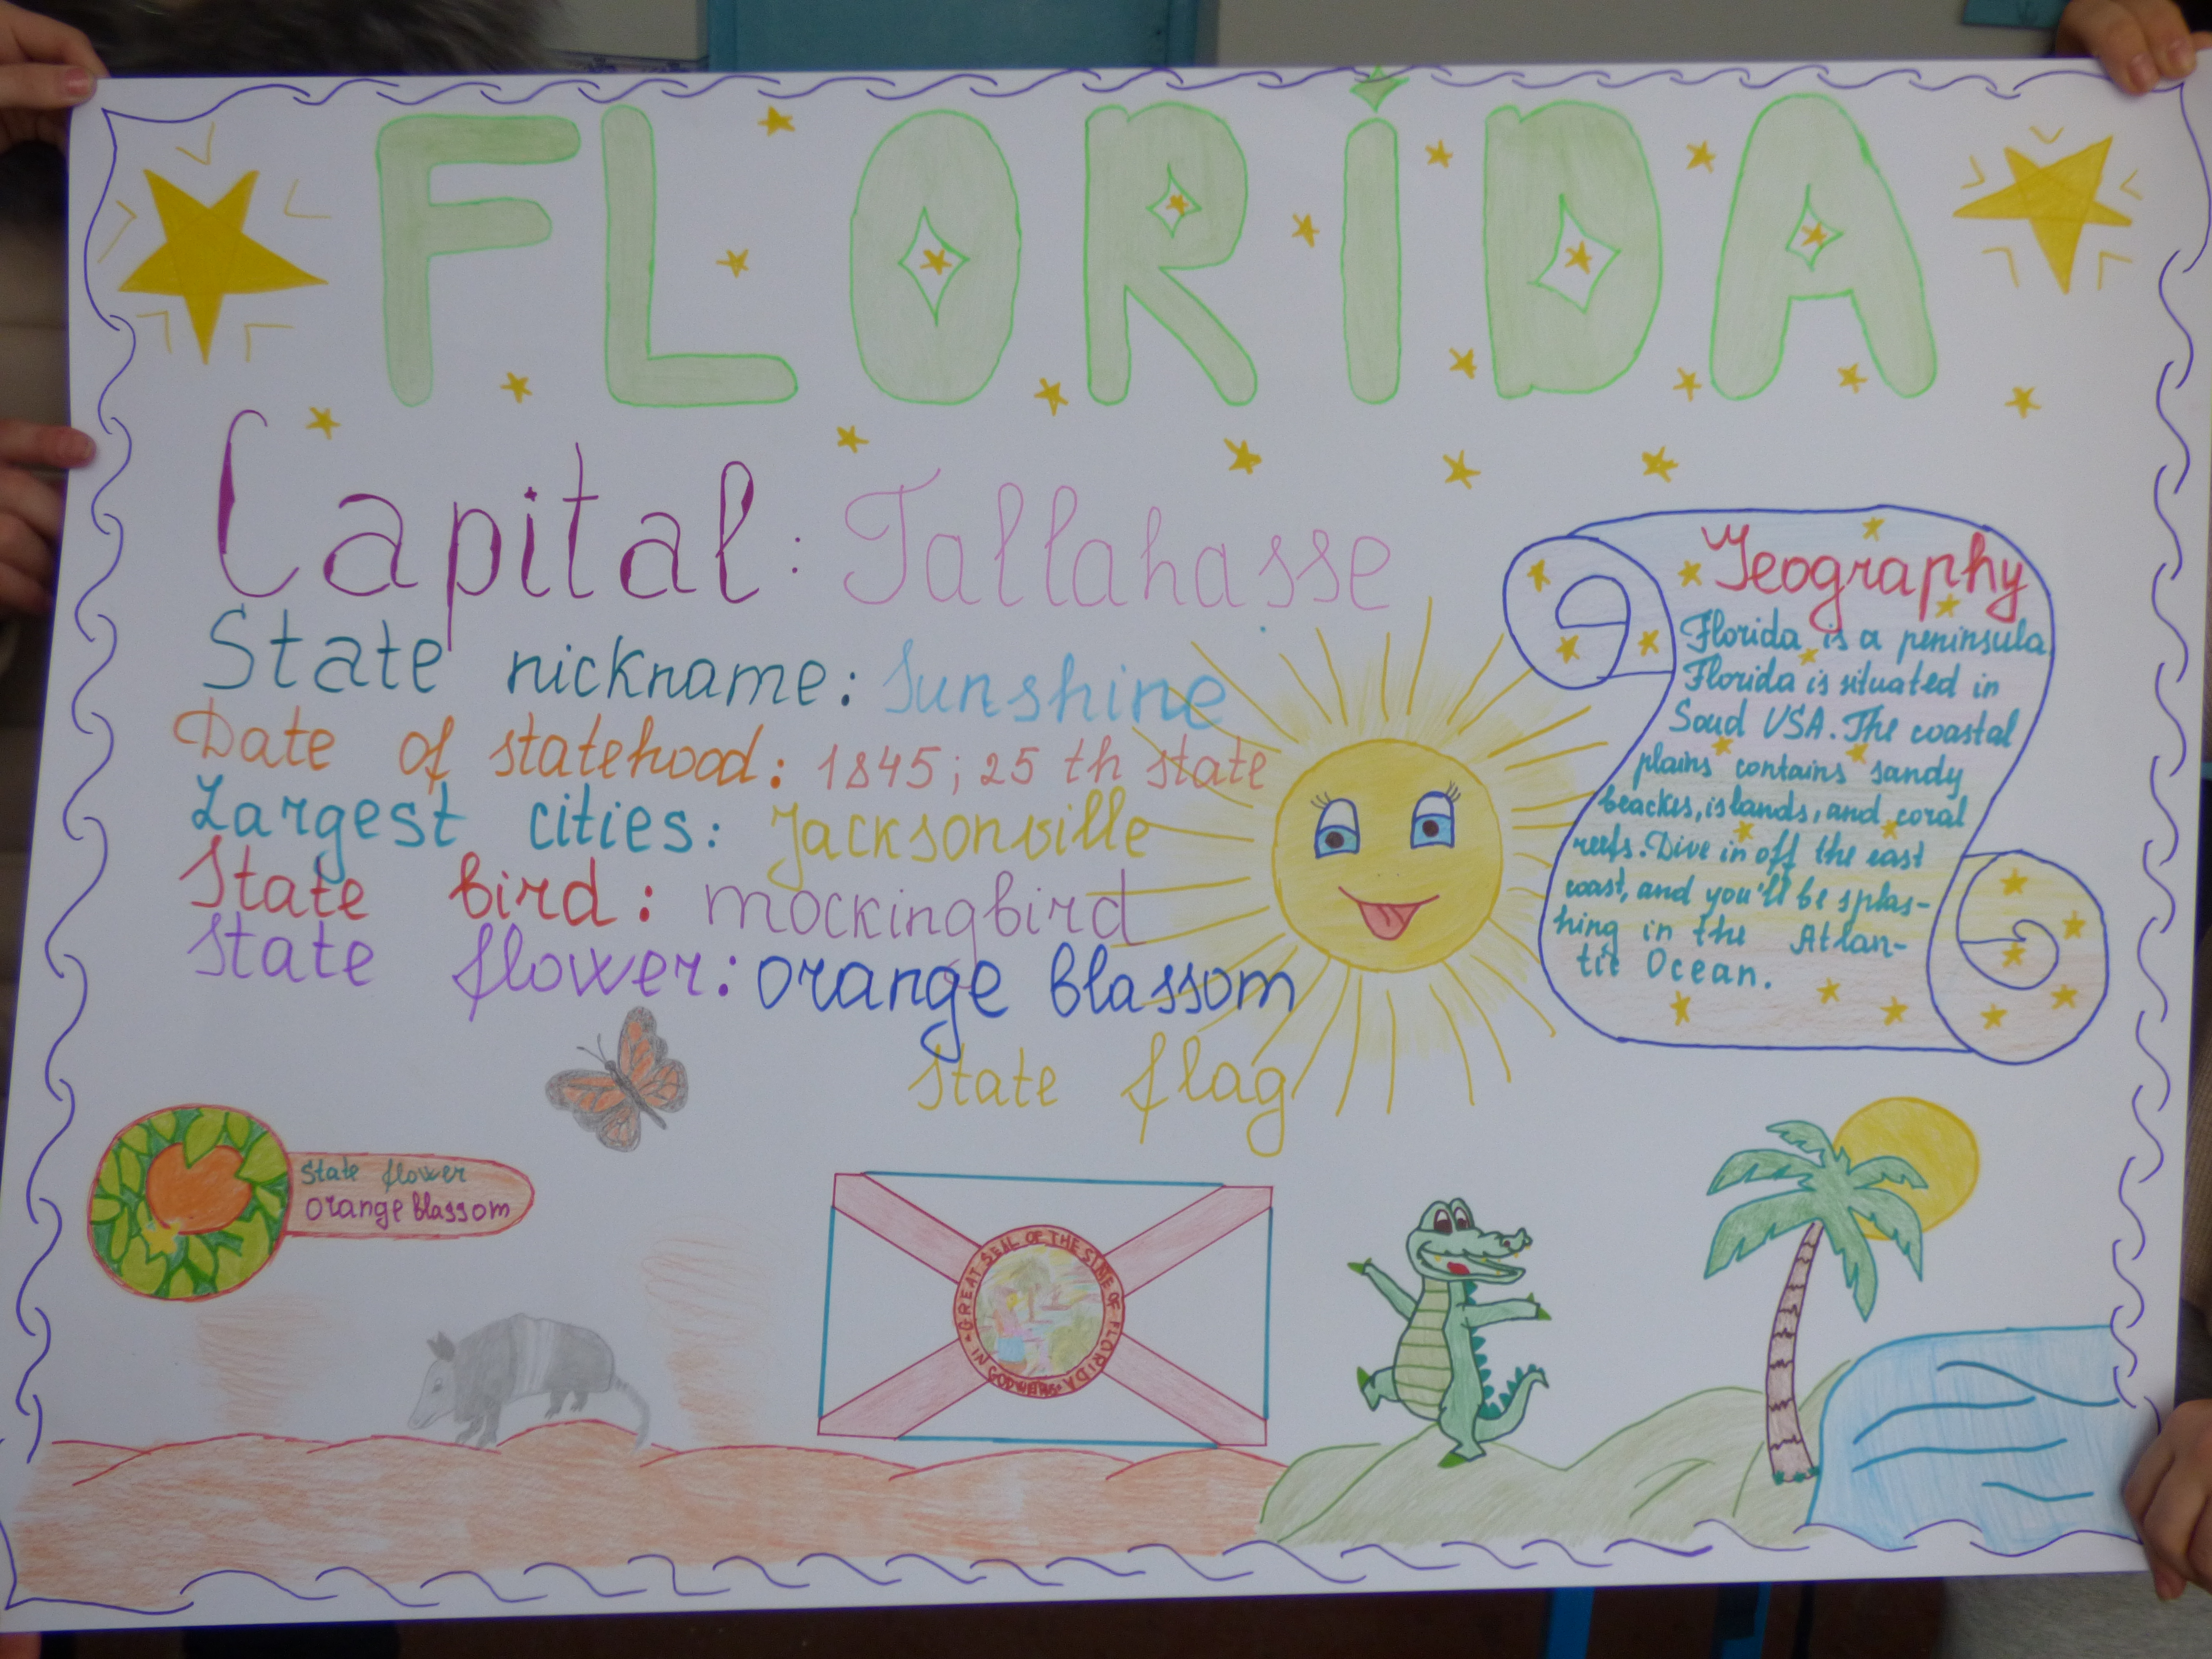 FLORIDA
Capital: Tallahasse
State nickname: Sunshine
Date of statehood: 1845; 25 th state
Largest cities: Jacksonville
State bird: mockingbird
State flower: orange blassom
State flag
Geography
Florida is a peninsula
Florida is situated in
Soud USA. The coastal
plains contains sandy
beackes, islands, and coral
reefs. Dive in off the east
coast, and you'll be splas-
hing in the Atlan-
tic Ocean.
State flower
orange blassom
GREAT SEAL OF THE STATE OF FLORIDA
IN GOD WE